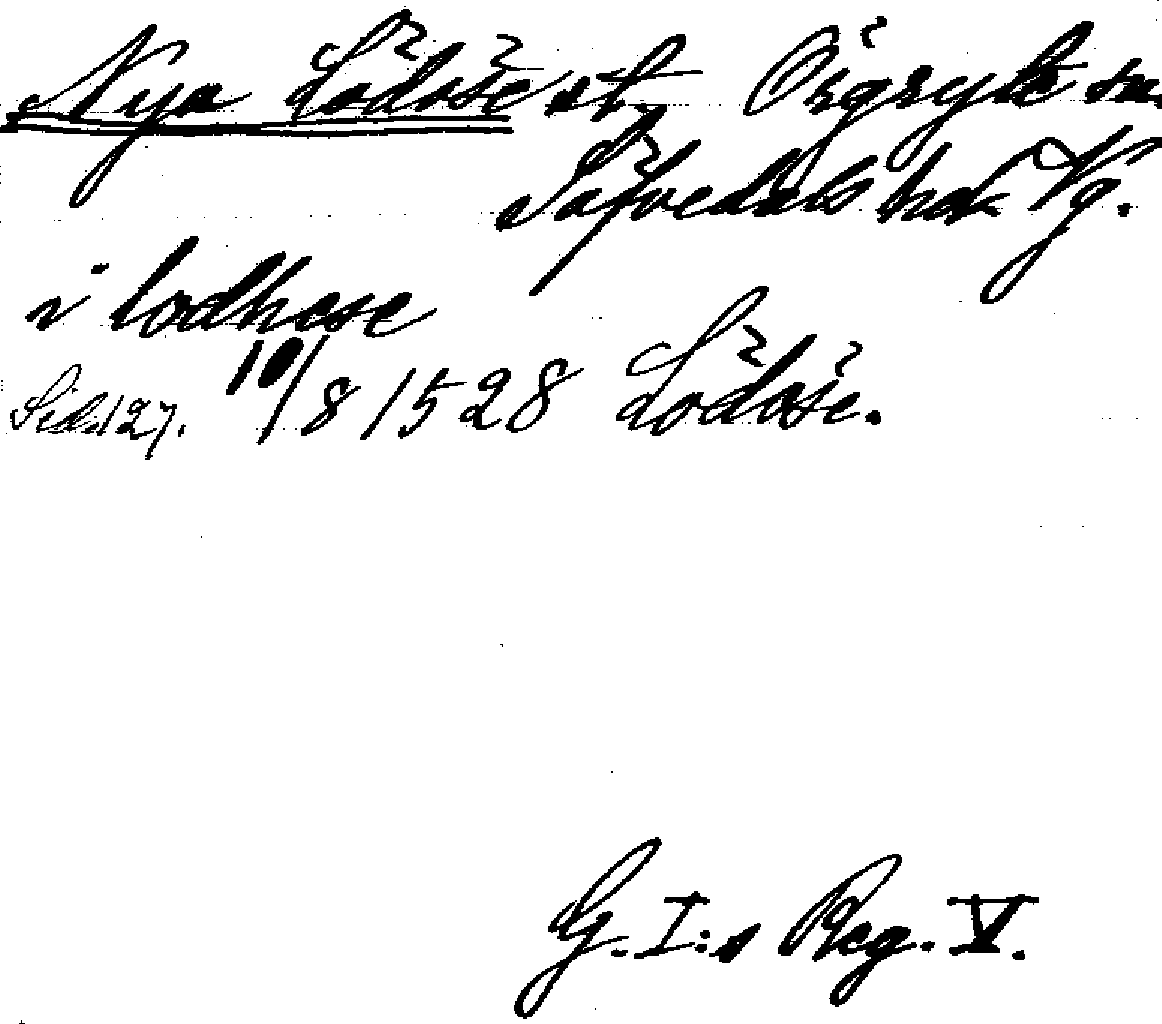 Nya Lödöse st. Örgryte sn.
Säfvedals hd. Vg.
i lodhese
Sid. 127. 10/8 1528 Lödöse.
G. I:s Reg. V.